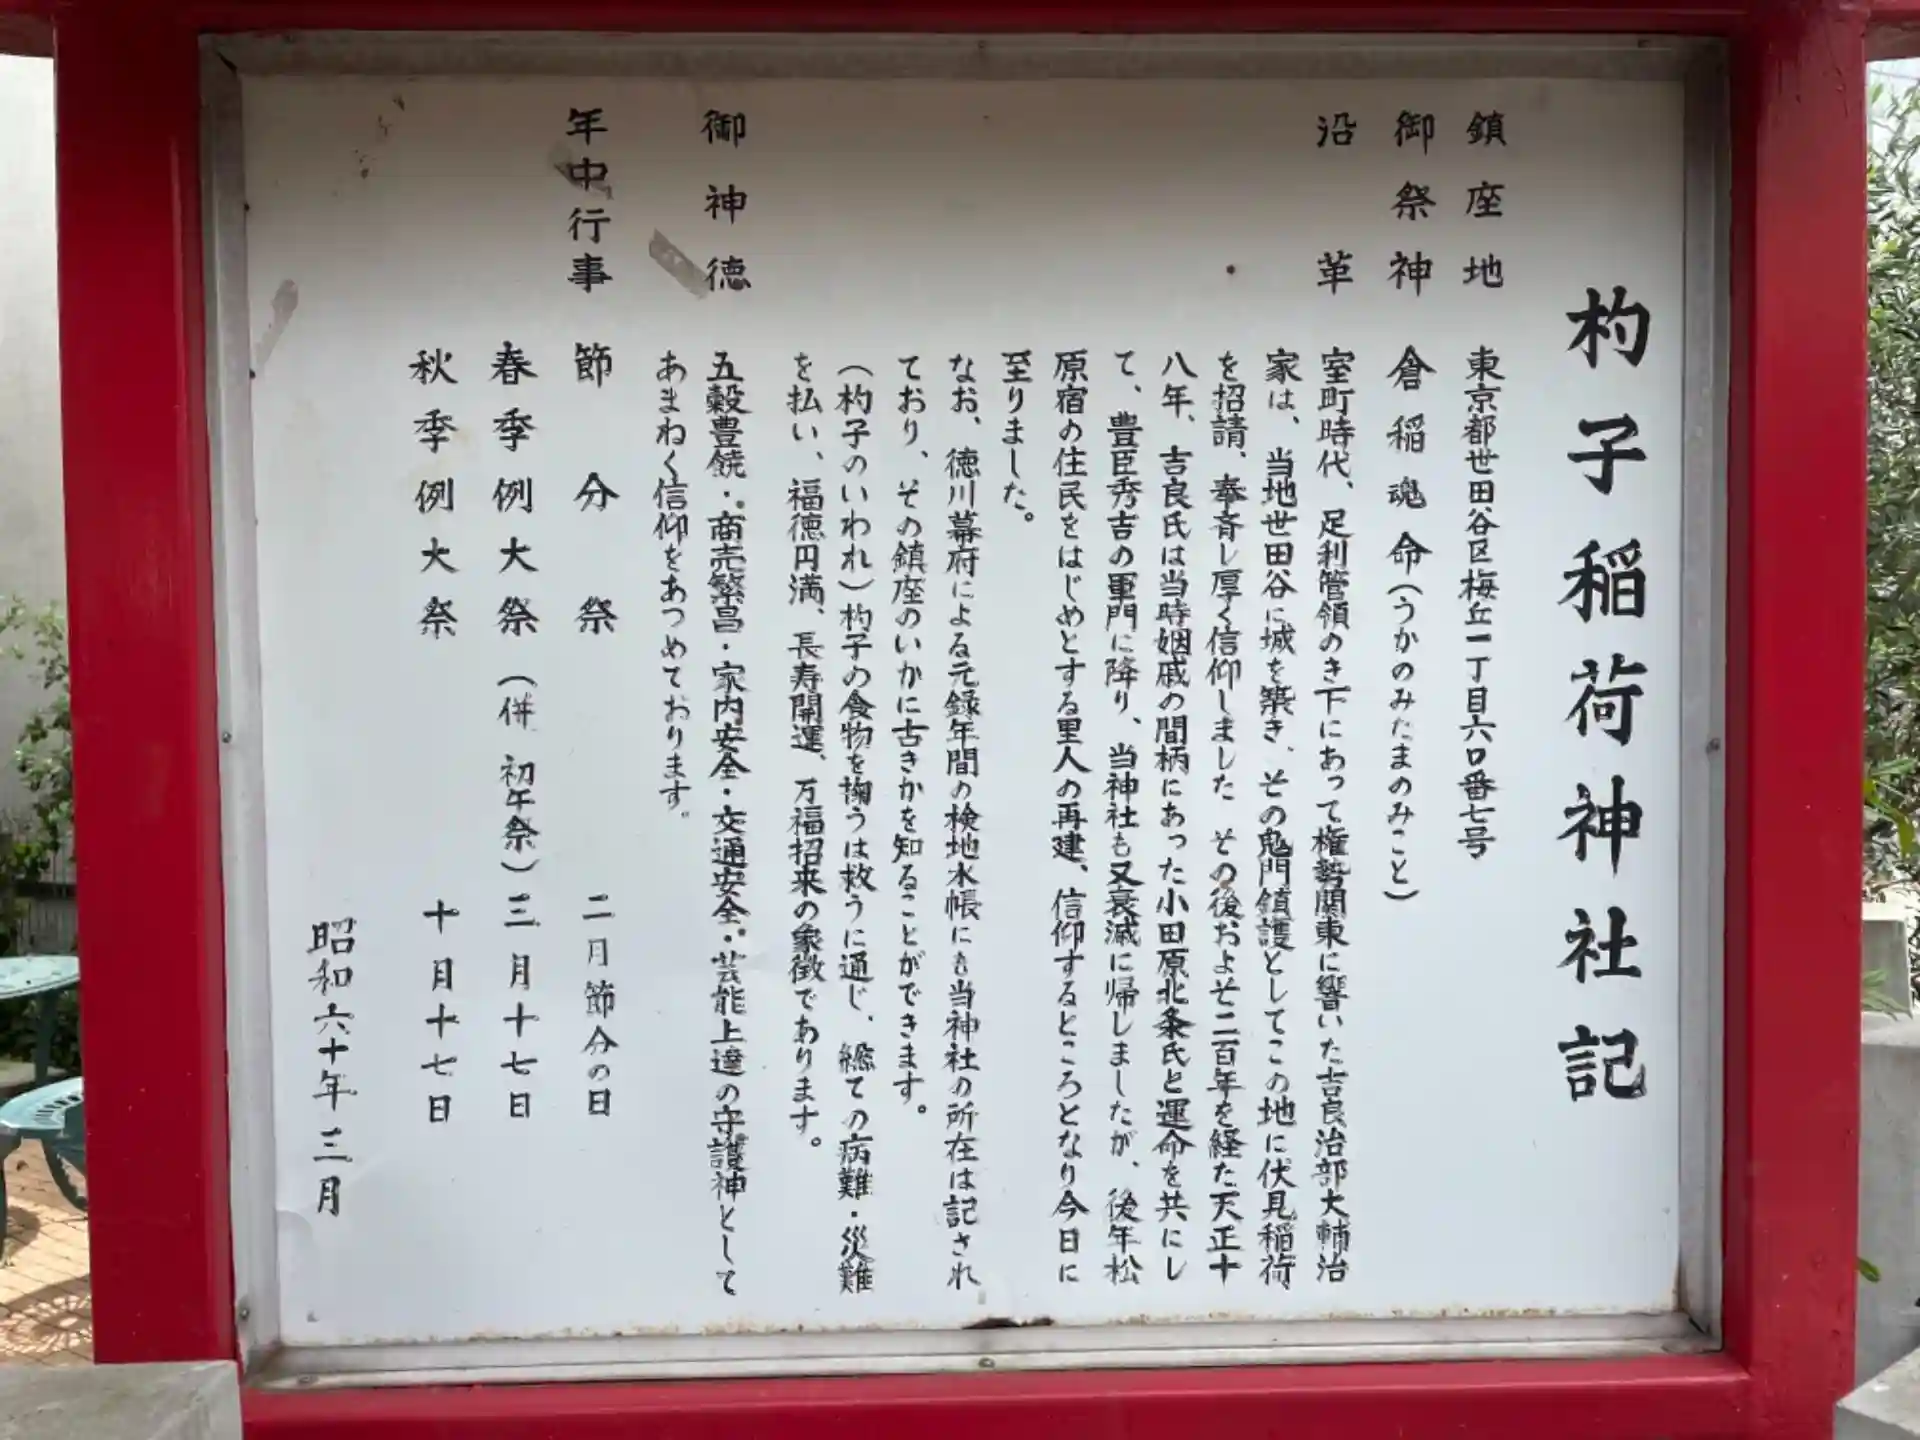 杓子稲荷神社記
鎮座地 東京都世田谷区梅丘一丁目六〇番七号
御祭神 倉稲魂命(うかのみたまのみこと)
沿革 室町時代、足利管領のき下にあって権勢関東に響いた吉良治部大輔治
家は、当地世田谷に城を築き、その鬼門鎮護としてこの地に伏見稲荷
を招請、奉斉し厚く信仰しました その後およそ二百年を経た天正十
八年、吉良氏は当時姻戚の間柄にあった小田原北条氏と運命を共にし
て、豊臣秀吉の軍門に降り、当神社も又衰滅に帰しましたが、後年松
原宿の住民をはじめとする里人の再建、信仰するところとなり今日に
至りました。
なお、徳川幕府による元録年間の検地水帳にも当神社の所在は記され
ており、その鎮座のいかに古きかを知ることができます。
(杓子のいわれ)杓子の食物を掬うは救うに通じ、総ての病難・災難
を払い、福徳円満、長寿開運、万福招来の象徴であります。
御神徳 五穀豊饒・商売繁昌・家内安全・交通安全・芸能上達の守護神として
あまねく信仰をあつめております。
年中行事 節分祭 二月節分の日
春季例大祭(併 初午祭)三月十七日
秋季例大祭 十月十七日
昭和六十年三月